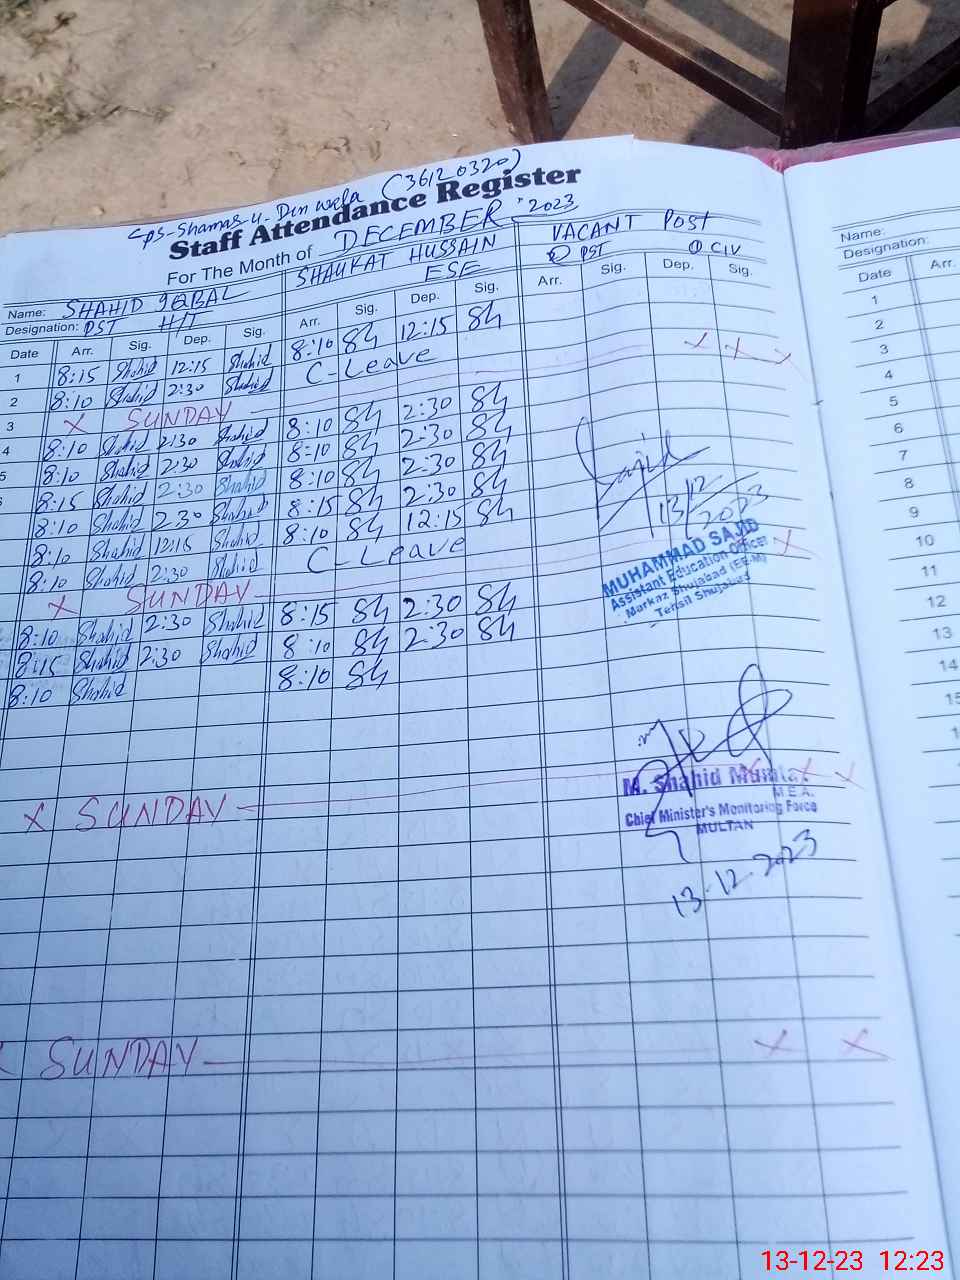 GPS-Shamas-U-Din wala (36120320)
Staff Attendance Register
For The Month of DECEMBER, 2023
Name: SHAHID IQBAL SHAUKAT HUSSAIN VACANT POST
Designation: PST H/T ESE PST CIV
Date Arr. Sig. Dep. Sig. Arr. Sig. Dep. Sig. Arr. Sig. Dep. Sig.
1 8:15 Shahid 12:15 Shahid 8:10 Sh 12:15 Sh
2 8:10 Shahid 2:30 Shahid C-Leave
3 X SUNDAY X X X
4 8:10 Shahid 2:30 Shahid 8:10 Sh 2:30 Sh
5 8:10 Shahid 2:30 Shahid 8:10 Sh 2:30 Sh
8:15 Shahid 2:30 Shahid 8:10 Sh 2:30 Sh
8:10 Shahid 2:30 Shahid 8:15 Sh 2:30 Sh
8:10 Shahid 12:15 Shahid 8:10 Sh 12:15 Sh
8:10 Shahid 2:30 Shahid C-Leave
X SUNDAY X
8:10 Shahid 2:30 Shahid 8:15 Sh 2:30 Sh
8:15 Shahid 2:30 Shahid 8:10 Sh 2:30 Sh
8:10 Shahid 8:10 Sh
Sajid
13/12/2023
MUHAMMAD SAJID
Assistant Education Officer
Markaz Shujabad (EE-M)
Tehsil Shujabad
X SUNDAY X X
M. Shahid Mumtaz
M.E.A.
Chief Minister's Monitoring Force
MULTAN
13-12-2023
SUNDAY X X
Name:
Designation:
Date Arr.
1
2
3
4
5
6
7
8
9
10
11
12
13
14
15
13-12-23 12:23